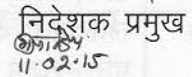 निदेशक प्रमुख
11.02.15